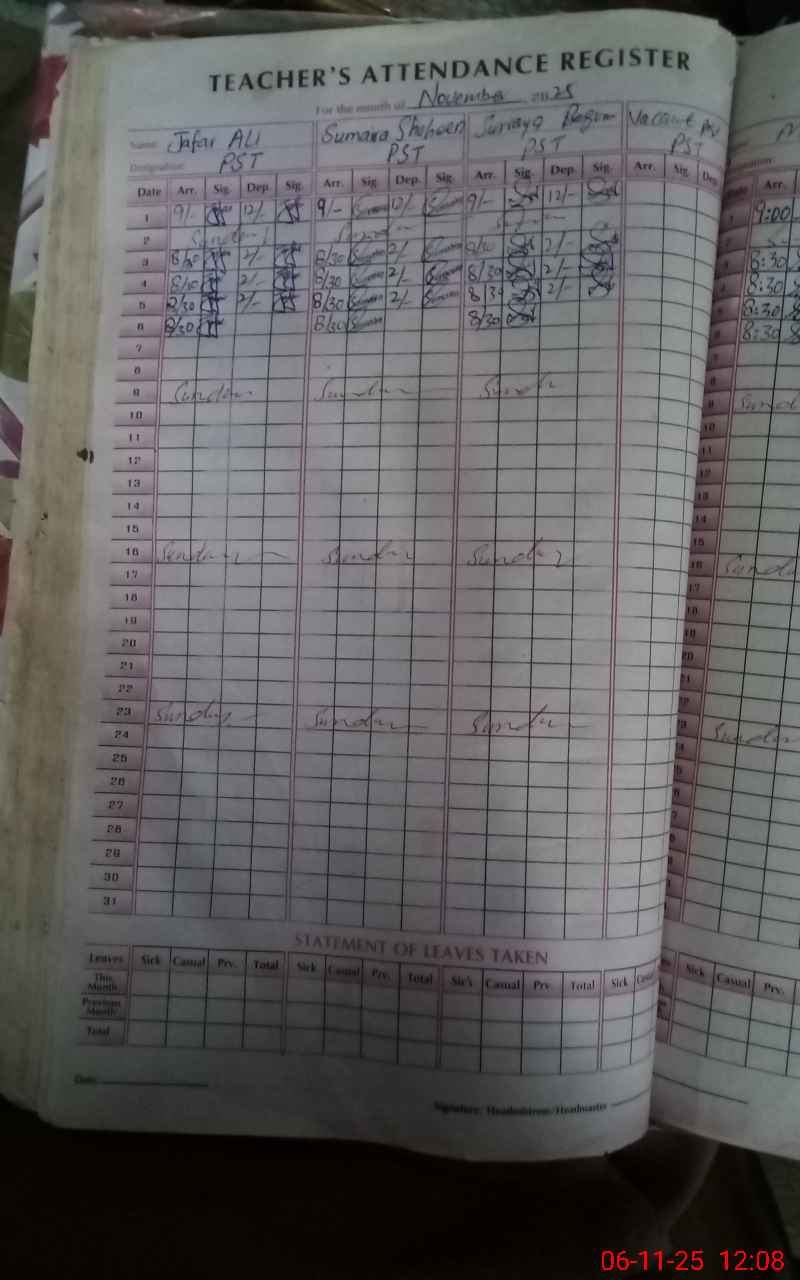 TEACHER'S ATTENDANCE REGISTER
For the month of November 2025
Name: Jafar ALI Sumaira Shaheen Surraya Begum Vacant
Designation PST PST PST PST
Date Arr. Sig. Dep. Sig. Arr. Sig. Dep. Sig. Arr. Sig. Dep. Sig. Arr. Sig. Dep Date Arr.
1 9/- 12/- 9/- 12/- 9/- 12/- 1 9:00
2 Sunday Sunday Sunday
3 8/30 2/- 8/30 2/- 8/30 2/- 8:30
4 8/30 2/- 8/30 2/- 8/30 2/- 8:30
5 8/30 2/- 8/30 2/- 8/30 2/- 8:30
6 8/30 8/30 8/30 8:30
7
8
9 Sunday Sunday Sund Sund
10
11
12
13
14
15
16 Sunday Sunday Sunday Sunda
17
18
19
20
21
22
23 Sunday Sunday Sunday Sunday
24
25
26
27
28
29
30
31
STATEMENT OF LEAVES TAKEN
Leaves Sick Casual Prv. Total Sick Casual Prv. Total Sick Casual Prv. Total Sick Sick Casual Prv.
This Month
Previous Month
Total
Date
Signature: Headmistress/Headmaster
06-11-25 12:08